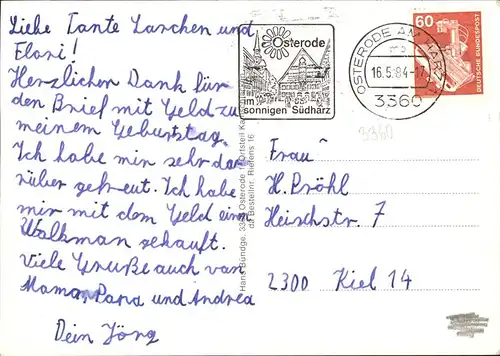 Liebe Tante Larchen und
Flori!
Herzlichen Dank für
den Brief mit Geld zu
meinem Geburtstag.
Ich habe mir sehr dar
rüber gefreut. Ich habe
mir mit dem Geld ein
Walkman gekauft.
Viele Gruße auch van
Mama, Papa und Andrea
Dein Jörg
Osterode
im
sonnigen Südharz
OSTERODE AM HARZ
16.5.84-17
3360
60
DEUTSCHE BUNDESPOST
3360
Hans Sündge, 3360 Osterode 1/Ortsteil
Bestellnr. Riefens 16
Frau
H. Pröhl
Heischstr. 7
2300 Kiel 14